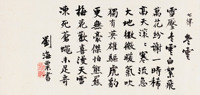 七律 冬雲
雪壓冬雲白絮飛
萬花紛謝一時稀
高天滾滾寒流急
大地微微暖氣吹
獨有英雄驅虎豹
更無豪傑怕熊羆
梅花歡喜漫天雪
凍死蒼蠅未足奇
劉海粟書